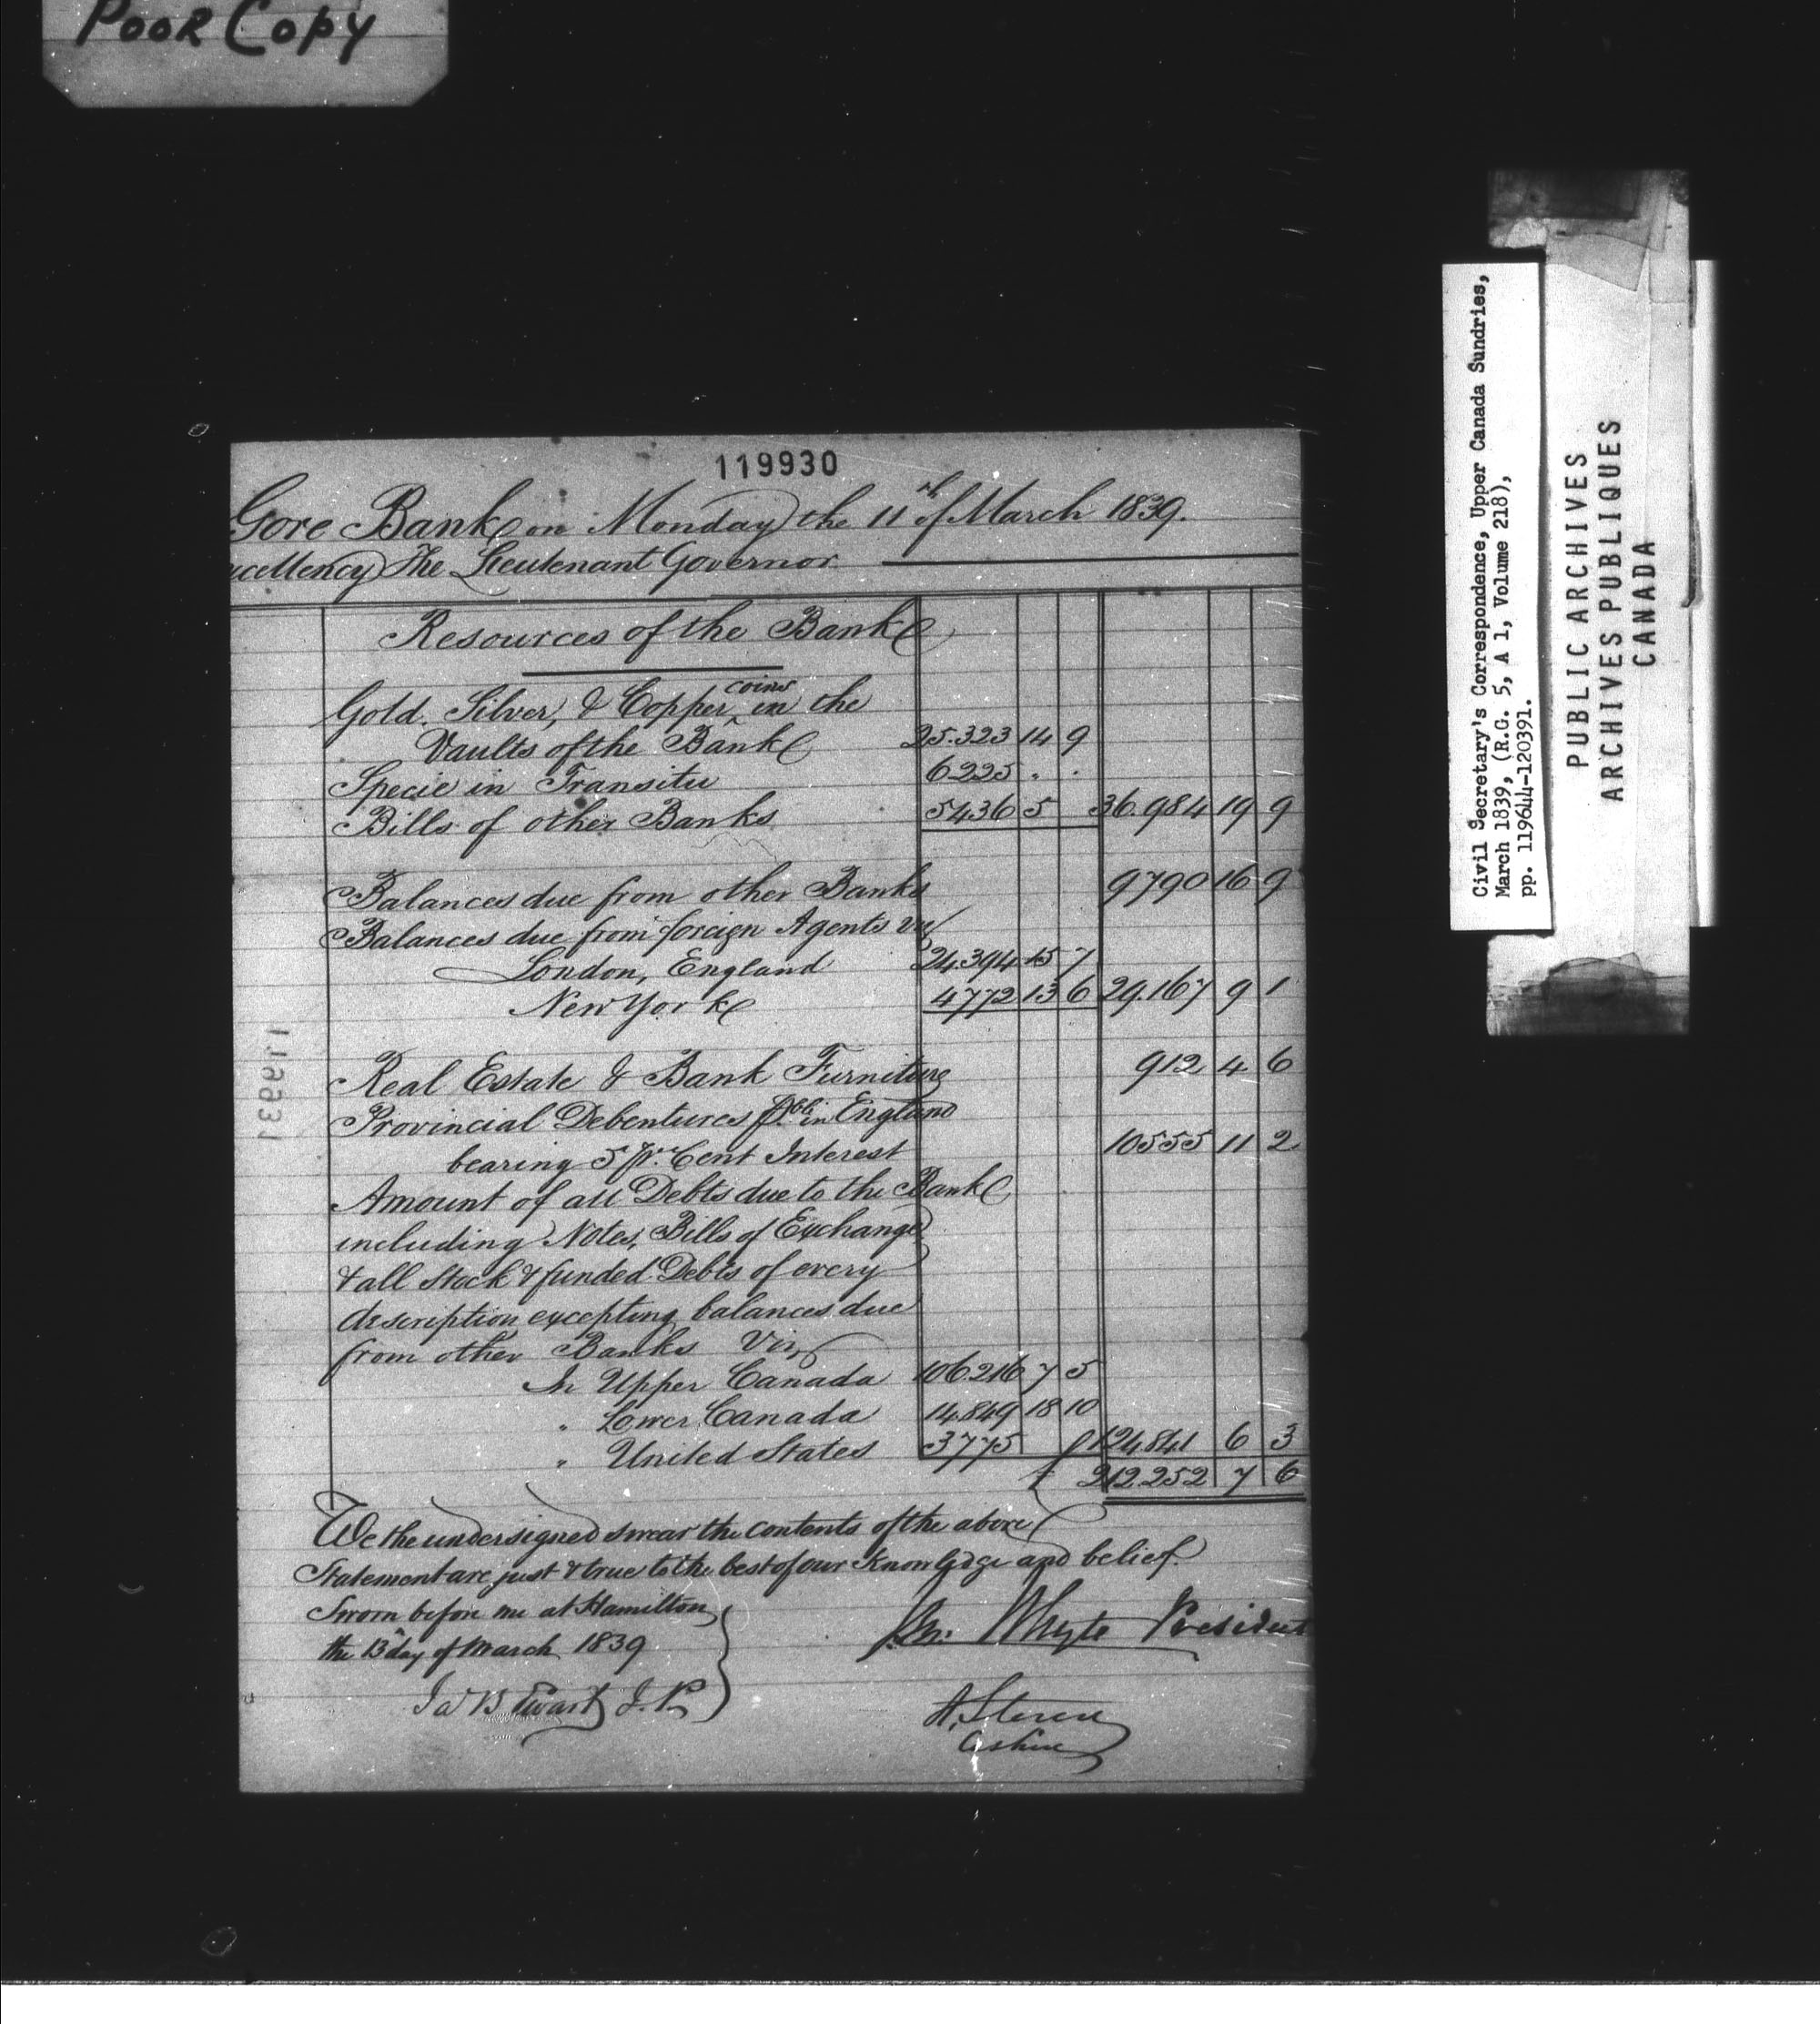 Poor Copy
119930
Gore Bank on Monday the 11th of March 1839.
xcellency The Lieutenant Governor
Resources of the Bank
Gold, Silver, & Copper coins in the
Vaults of the Bank 25.323 14 9
Specie in Transitu 6225 . .
Bills of other Banks 5436 5 36.984 19 9
Balances due from other Banks 9790 16 9
Balances due from foreign Agents viz
London, England 24.394 15 7
New York 4772 13 6 29.167 9 1
Real Estate & Bank Furniture 912 4 6
Provincial Debentures pble in England
bearing 5 pr. Cent Interest 10555 11 2
Amount of all Debts due to the Bank
including Notes, Bills of Exchange
& all Stock & funded Debts of every
description excepting balances due
from other Banks Viz
In Upper Canada 106.216 7 5
" Lower Canada 14.849 18 10
" United States 3775 124.841 6 3
£ 212.252 7 6
We the undersigned swear the contents of the above
Statement are just & true to the best of our Knowledge and belief.
Sworn before me at Hamilton
the 13th day of March 1839
Jas B Ewart J.P.
Jn: Whyte President
A. Steven
Cashier
119931
Civil Secretary's Correspondence, Upper Canada Sundries,
March 1839, (R.G. 5, A 1, Volume 218),
pp. 119644-120391.
PUBLIC ARCHIVES
ARCHIVES PUBLIQUES
CANADA